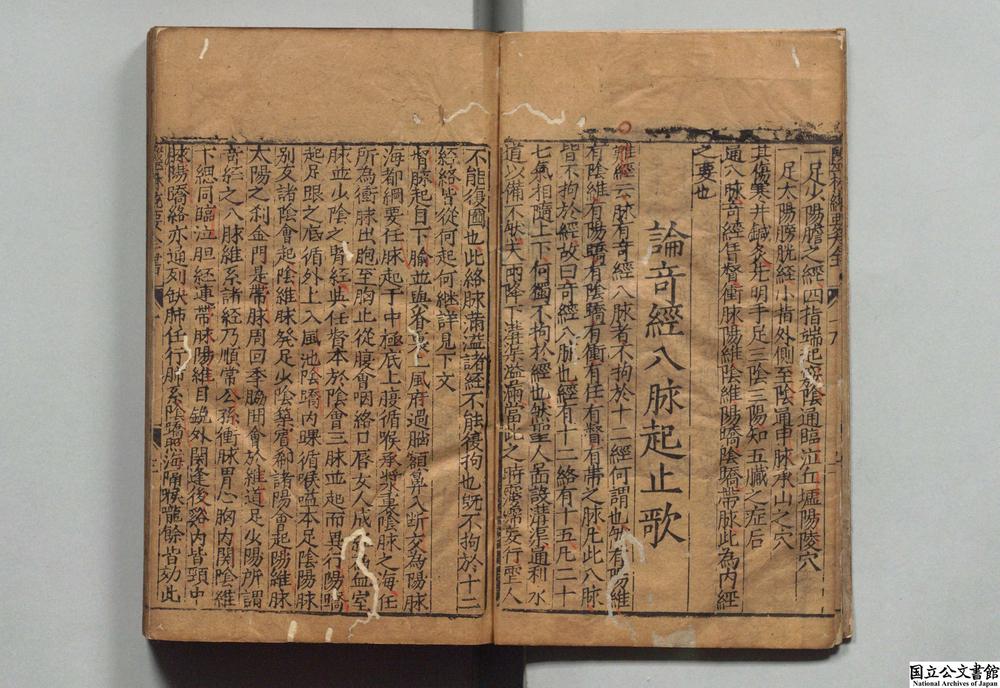 一足少陽膽之經四指端起竅陰通臨泣丘墟陽陵穴
一足太陽膀胱經小指外側至陰通申脉承山之穴
其傷寒并鍼灸先明手足三陰三陽知五臟之症后
通八脉奇經任督衝脉陽維陰維陽蹺陰蹺帶脉此為内經
之要也
論竒經八脉起止歌
難經云脉有竒經八脉者不拘於十二經何謂也然有陽維
有陰維有陽蹻有陰蹻有衝有任有督有帶之脉凡此八脉
皆不拘於經故曰竒經八脉也經有十二絡有十五凡二十
七氣相隨上下何獨不拘於經也然聖人啚設溝渠通利水
道以備不然天雨降下溝渠溢滿當此之時霶霈妄行聖人
不能復圖也此絡脉滿溢諸經不能復拘也既不拘於十二
經絡皆從何起何継詳見下文
督脉起自下腧並與脊裏上風府過腦額鼻入断交為陽脉
海都綱要任脉起于中極底上腹循喉承漿裏陰脉之海任
所為衝脉出胞至胸止從腹會咽絡口唇女人成經為血室
脉並少陰之腎經與任督本於陰會三脉並起而異行陽蹻
起足跟之底循外上入風池陰蹻内踝循喉嗌本足陰陽脉
別支諸陰會起陰維脉發足少陰築賓郄諸陽會起陽維脉
太陽之利金門是帶脉周回季脇間會於維道足少陽所謂
竒經之八脉維系諸經乃順常公孫衝脉胃心胸内関陰維
下總同臨泣胆經連帶脉陽維目銳外関逢後谿内眥頸中
脉陽蹻絡亦通列缺肺任行肺系陰蹻照海膈喉嚨餘皆効此
国立公文書館
National Archives of Japan